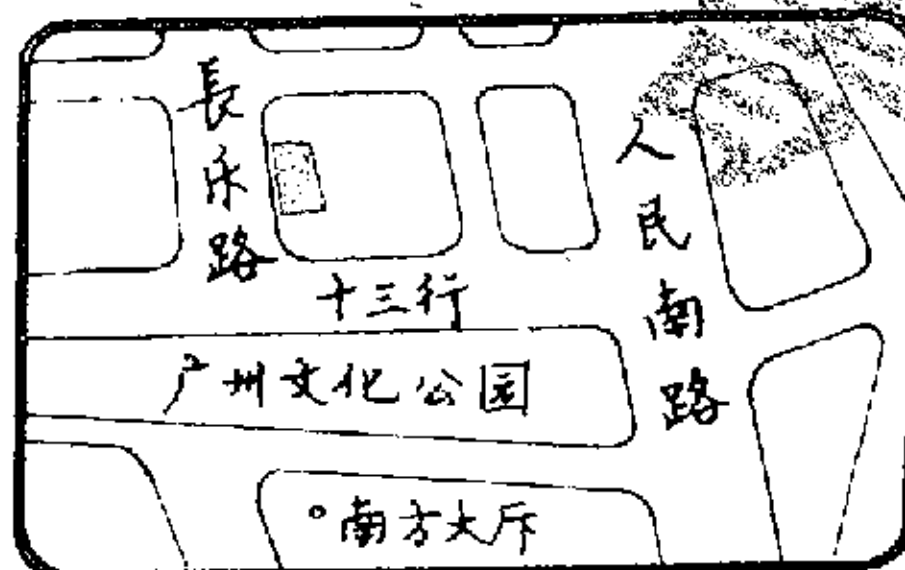 長乐路
人民南路
十三行
广州文化公园
南方大厈